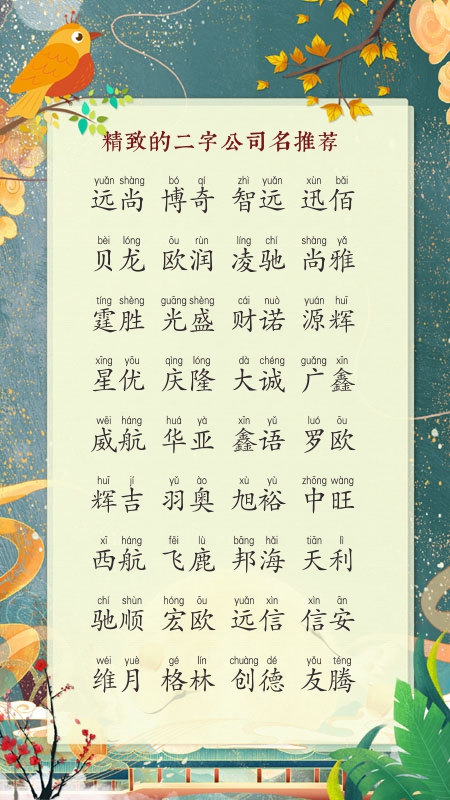 精致的二字公司名推荐
yuǎn shàng bó qí zhì yuǎn xùn bǎi
远尚 博奇 智远 迅佰
bèi lóng ōu rùn líng chí shàng yǎ
贝龙 欧润 凌驰 尚雅
tíng shèng guāng shèng cái nuò yuán huī
霆胜 光盛 财诺 源辉
xīng yōu qìng lóng dà chéng guǎng xīn
星优 庆隆 大诚 广鑫
wēi háng huá yà xīn yǔ luó ōu
威航 华亚 鑫语 罗欧
huī jí yǔ ào xù yù zhōng wàng
辉吉 羽奥 旭裕 中旺
xī háng fēi lù bāng hǎi tiān lì
西航 飞鹿 邦海 天利
chí shùn hóng ōu yuǎn xìn xìn ān
驰顺 宏欧 远信 信安
wéi yuè gé lín chuàng dé yǒu téng
维月 格林 创德 友腾